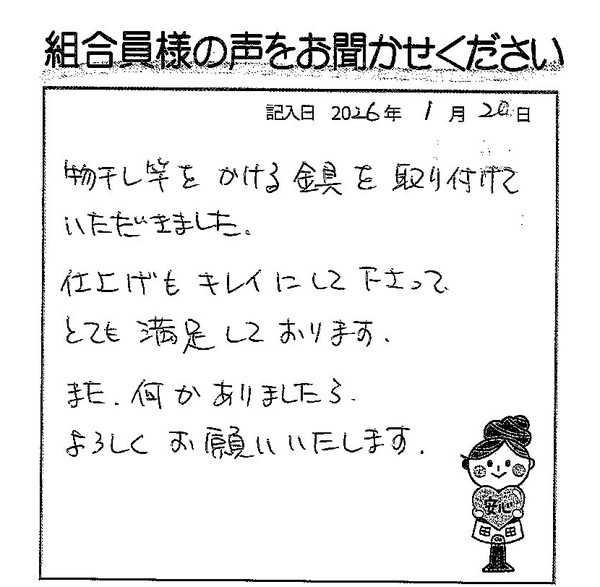 組合員様の声をお聞かせください
記入日 2026年 1月 20日
物干し竿を かける 金具を 取り付けて
いただきました.
仕上げも キレイにして 下さって
とても 満足しております.
また、何かありましたら、
よろしく お願いいたします.
安心